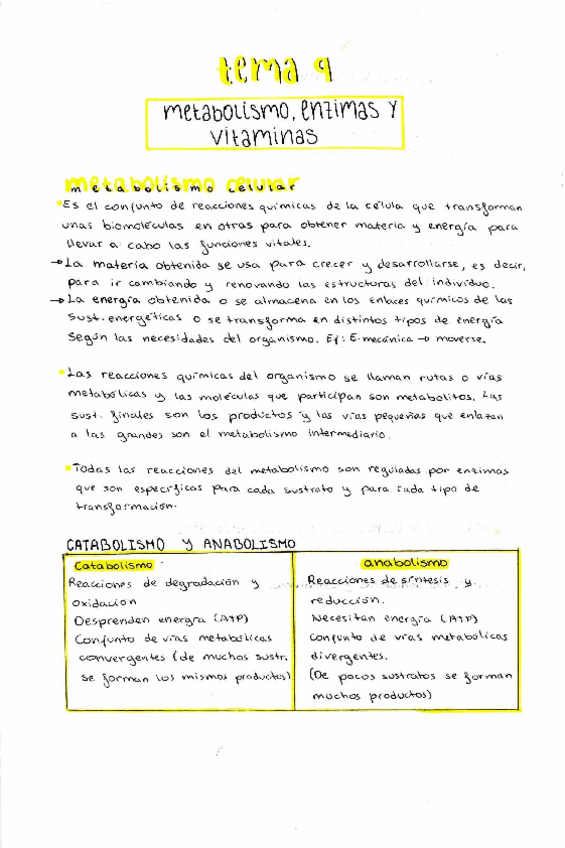 tema 9
metabolismo, enzimas y
vitaminas
metabolismo celular
•Es el conjunto de reacciones químicas de la célula que transforman
unas biomoléculas en otras para obtener materia y energía para
llevar a cabo las funciones vitales.
→La materia obtenida se usa para crecer y desarrollarse, es decir,
para ir cambiando y renovando las estructuras del individuo.
→La energía obtenida o se almacena en los enlaces químicos de las
sust. energéticas o se transforma en distintos tipos de energía
según las necesidades del organismo. Ej: E. mecánica → moverse.
•Las reacciones químicas del organismo se llaman rutas o vías
metabólicas y las moléculas que participan son metabolitos. Las
sust. finales son los productos y las vías pequeñas que enlazan
a las grandes son el metabolismo intermediario.
•Todas las reacciones del metabolismo son reguladas por enzimas
que son específicas para cada sustrato y para cada tipo de
transformación.
CATABOLISMO y ANABOLISMO
Catabolismo
Reacciones de degradación y
oxidación
Desprenden energía (ATP)
Conjunto de vías metabólicas
convergentes (de muchos sustr.
se forman los mismos productos)
anabolismo
Reacciones de síntesis y
reducción.
Necesitan energía (ATP)
conjunto de vías metabólicas
divergentes.
(De pocos sustratos se forman
muchos productos)